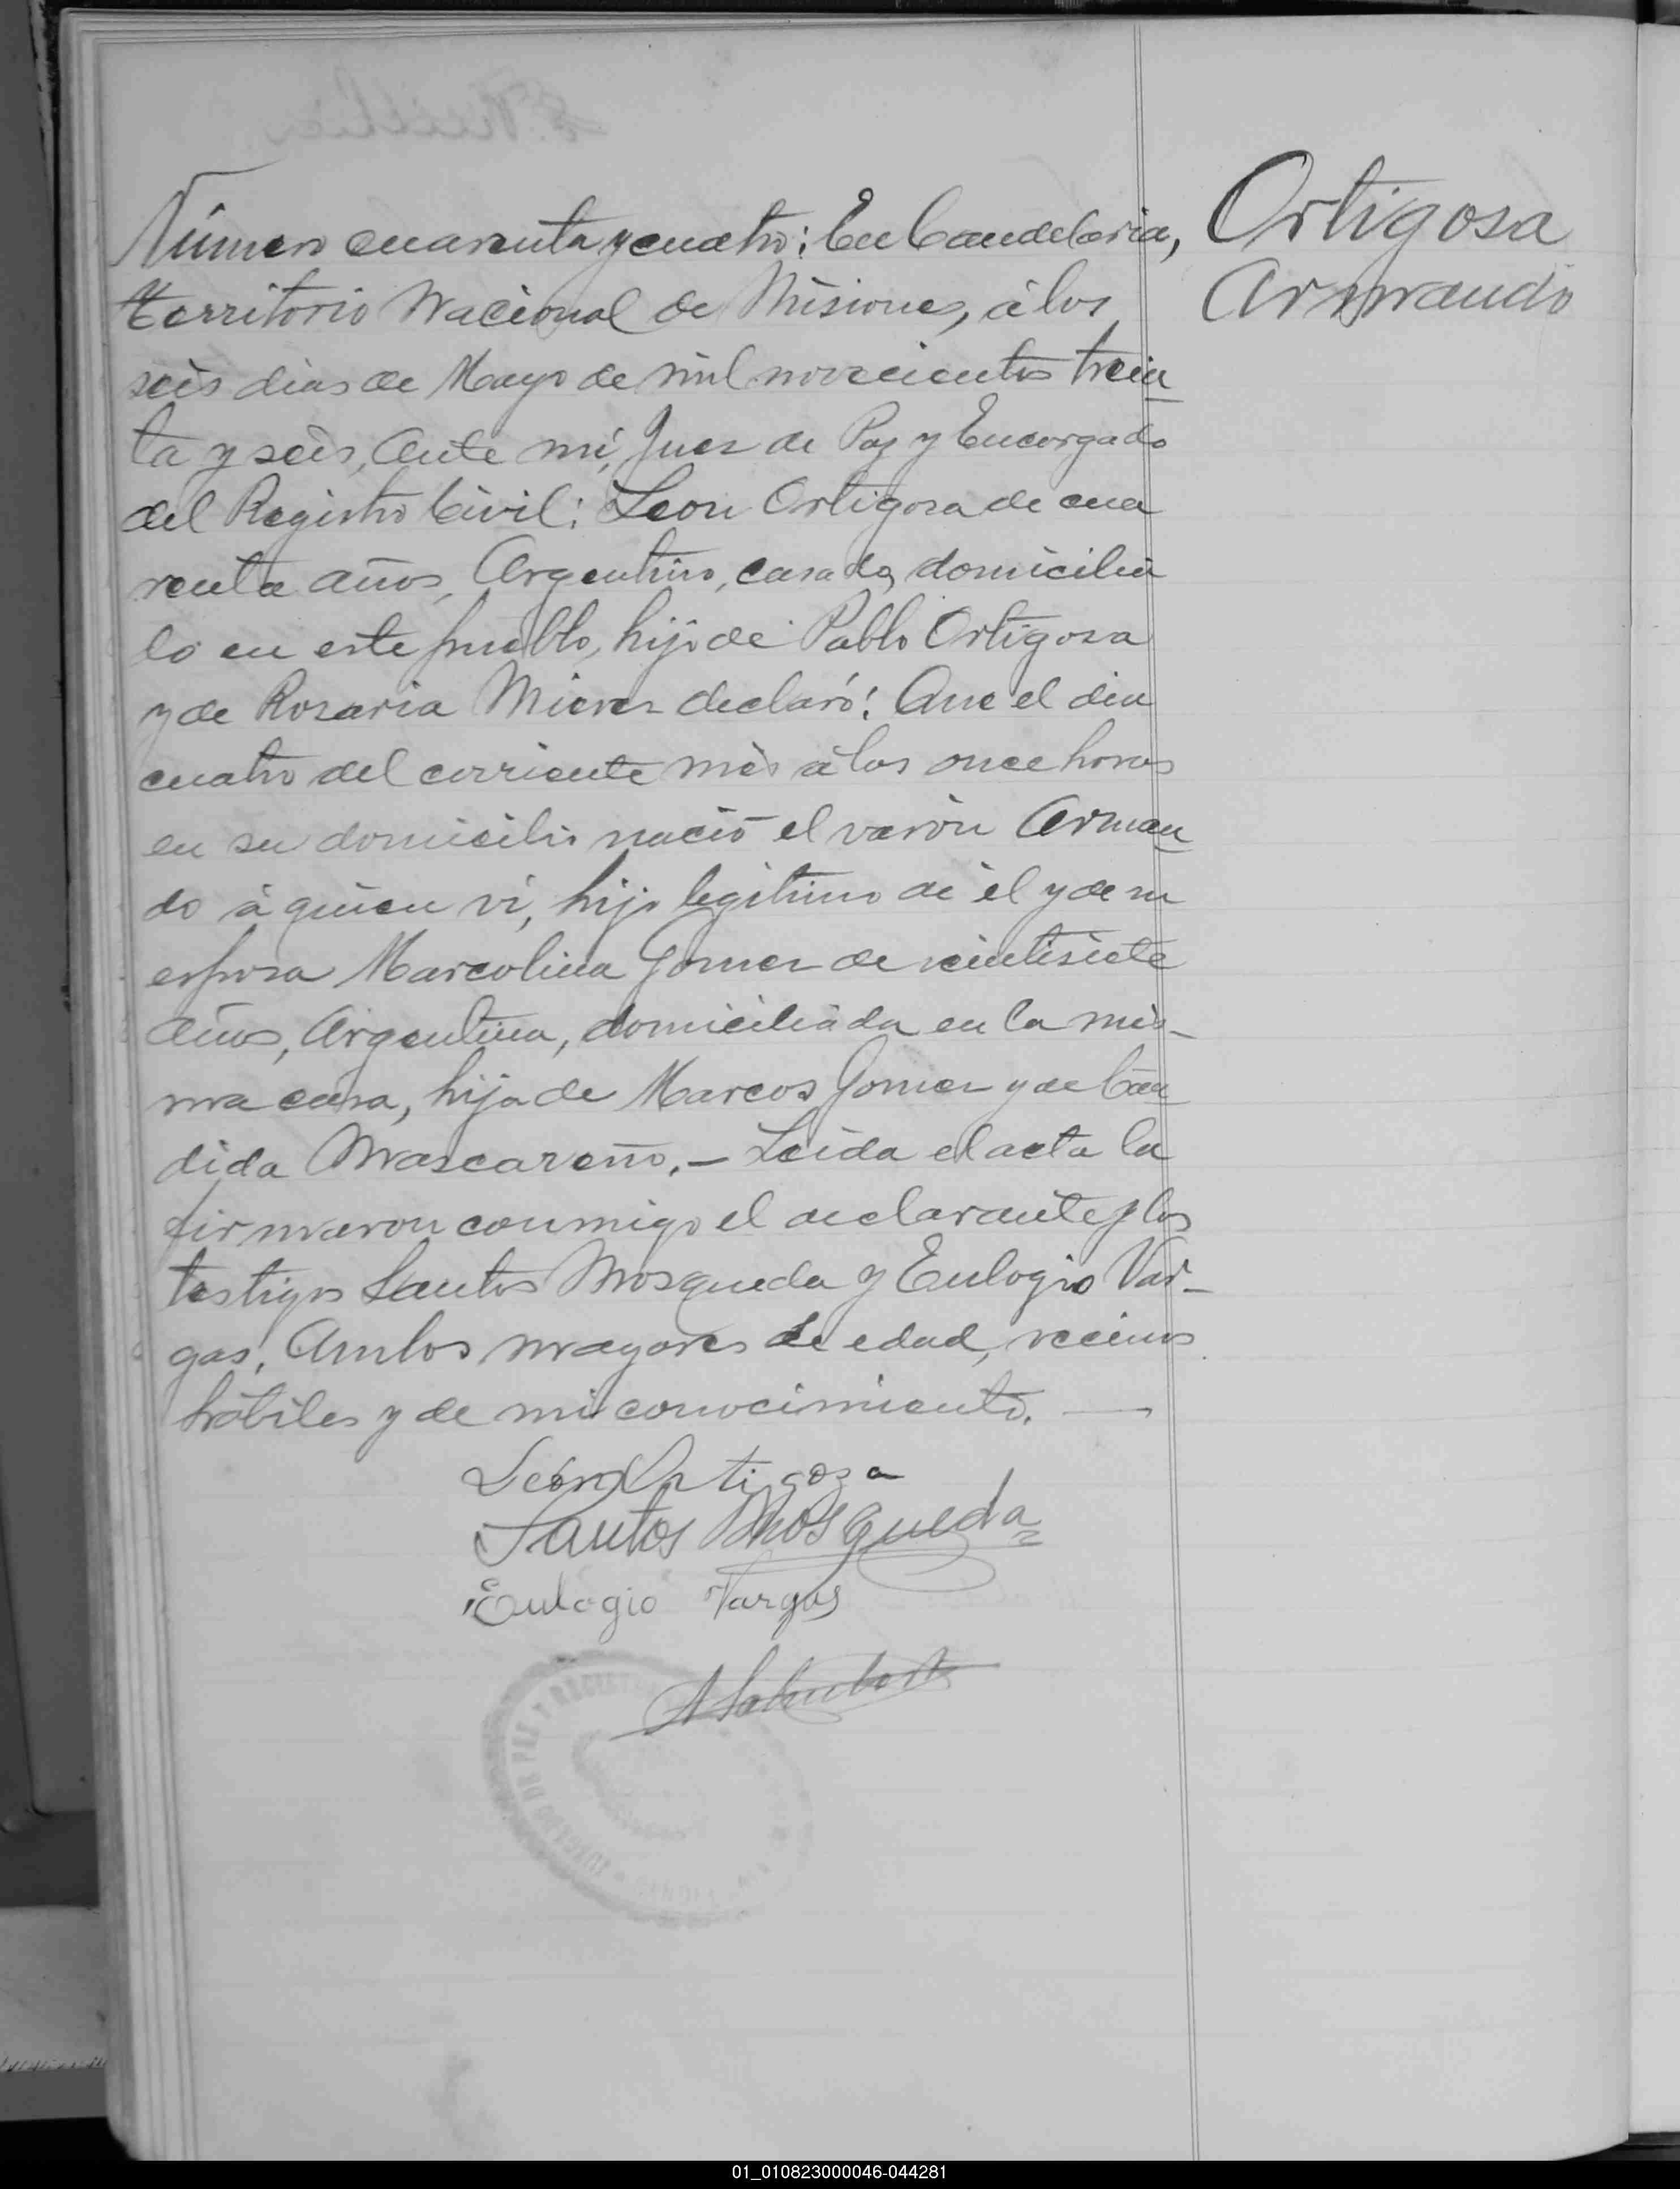 Ortigosa
Armando
Número cuarenta y cuatro: En Candelaria,
Territorio Nacional de Misiones, á los
seis dias de Mayo de mil novecientos trein
ta y seis, Ante mí, Juez de Paz y Encargado
del Registro Civil: Leon Ortigosa de cua
renta años, Argentino, casado, domicilia
do en este pueblo, hijo de Pablo Ortigosa
y de Rosaria Mierez declaró: Que el dia
cuatro del corriente mes á las once horas
en su domicilio nació el varón Arman
do á quien ví, hijo legítimo de él y de su
esposa Marcolina Gomez de veintisiete
años, Argentina, domiciliada en la mis-
ma casa, hija de Marcos Gomez y de Cán
dida Mascareño.- Leída el acta la
firmaron conmigo el declarante y los
testigos Santos Mosqueda y Eulogio Var-
gas, Ambos mayores de edad, vecinos
hábiles y de mi conocimiento.—
León Ortigoza
Santos Mosqueda
Eulogio Vargas
JUZGADO DE PAZ Y REGISTRO
01_010823000046-044281